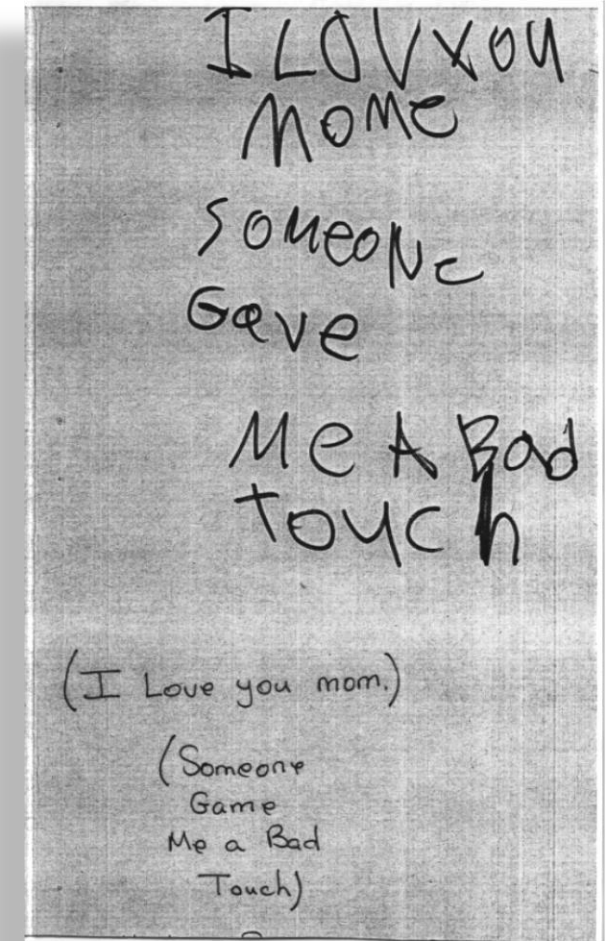 I LOV YOU
MOME
SOMEONe
Gave
Me A Bad
touch
(I Love you mom.)
(Someone
Game
Me a Bad
Touch)